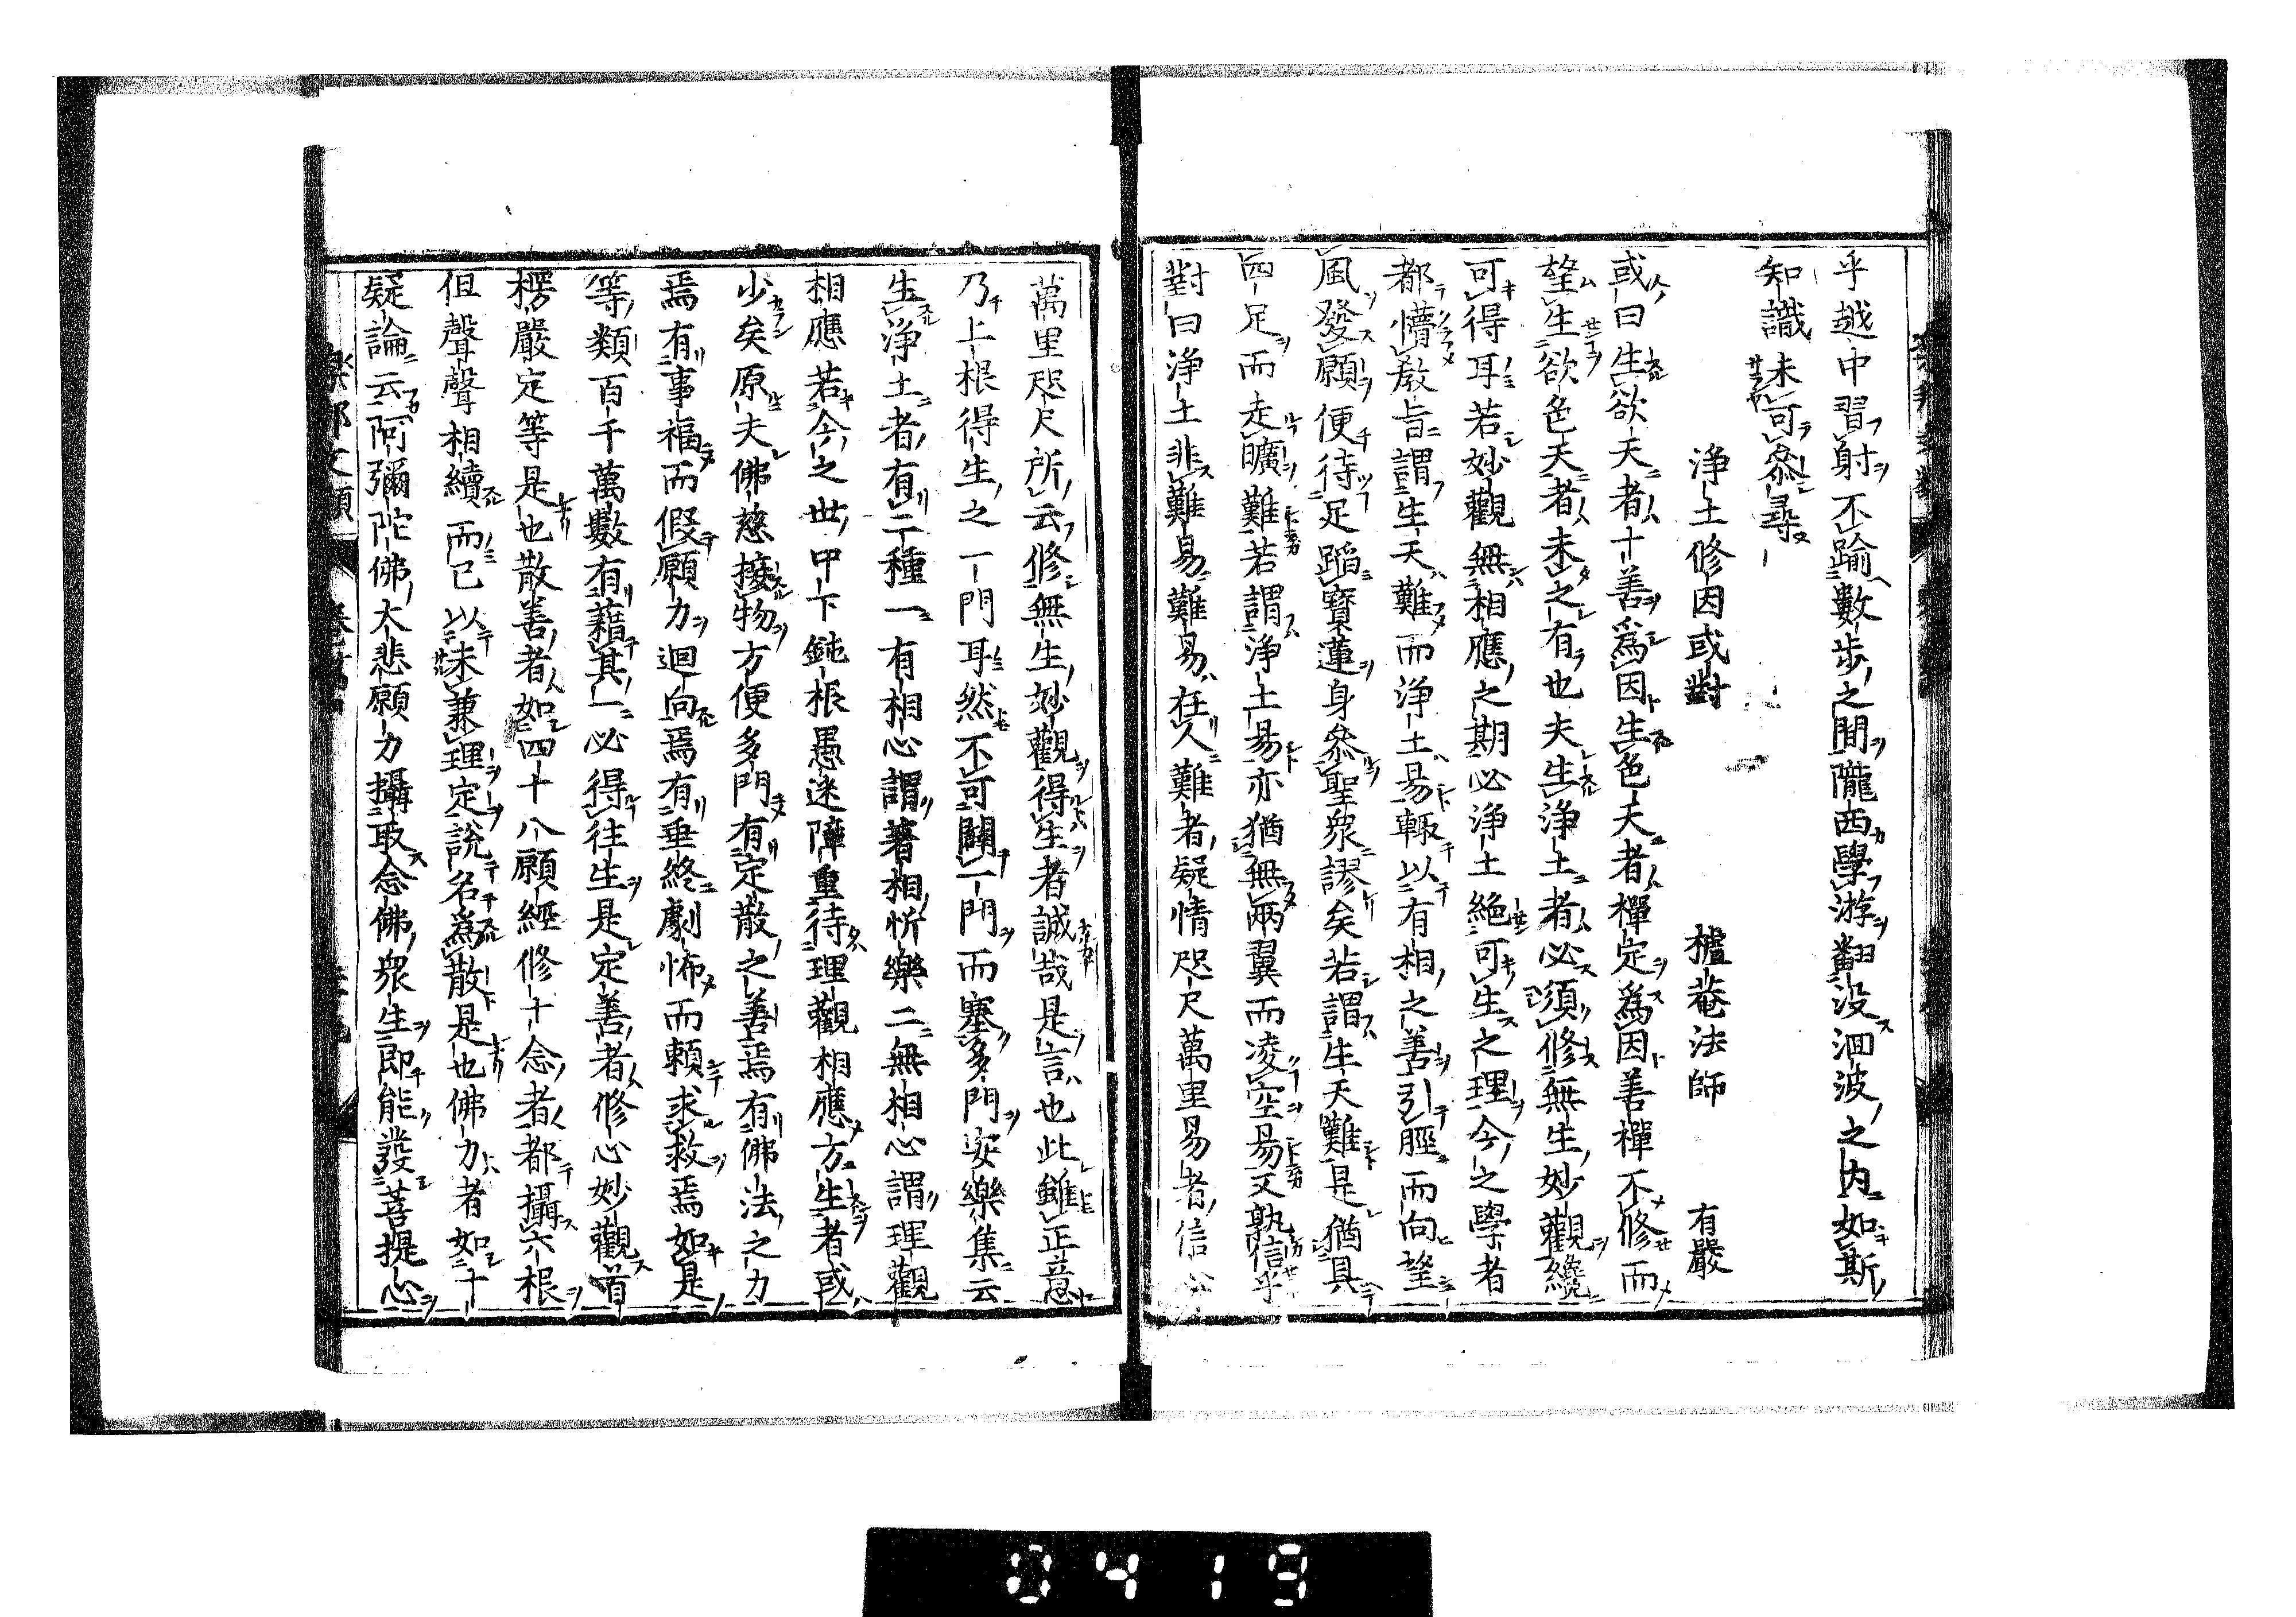 乎越中習射不踰數歩之間隴西學游翻没洄波之内如斯
知識未可叅尋
浄土修因或對
櫨菴法師
有嚴
或曰生欲天者十善爲因生色天者禪定爲因善禪不修而
望生欲色天者未之有也夫生浄土者必須修無生妙觀纔
可得耳若妙觀無相應之期必浄土絶可生之理今之學者
都懵教旨謂生天難而浄土易輙以有相之善引脛而向望
風發願便待足蹈寳蓮身叅聖衆謬矣若謂生天難是猶具
四足而走曠難若謂浄土易亦猶無兩翼而凌空易又孰信乎
對曰浄土非難易難易在人難者疑情咫尺萬里易者信心
萬里咫尺所云修無生妙觀得生者誠哉是言也此雖正意
乃上根得生之一門耳然不可闢一門而塞多門安樂集云
生浄土者有二種一有相心謂著相忻樂二無相心謂理觀
相應若今之世中下鈍根愚迷障重待理觀相應方生者或
少矣原夫佛慈接物方便多門有定散之善焉有佛法之力
焉有事福而假願力迴向焉有垂終劇怖而頼求救焉如是
等類百千萬數有藉其一必得往生是定善者修心妙觀首
楞嚴定等是也散善者如四十八願經修十念者都攝六根
但聲聲相續而已以未兼理定説名爲散是也佛力者如十
疑論云阿彌陀佛大悲願力攝取念佛衆生即能發菩提心
樂邦文類
0419